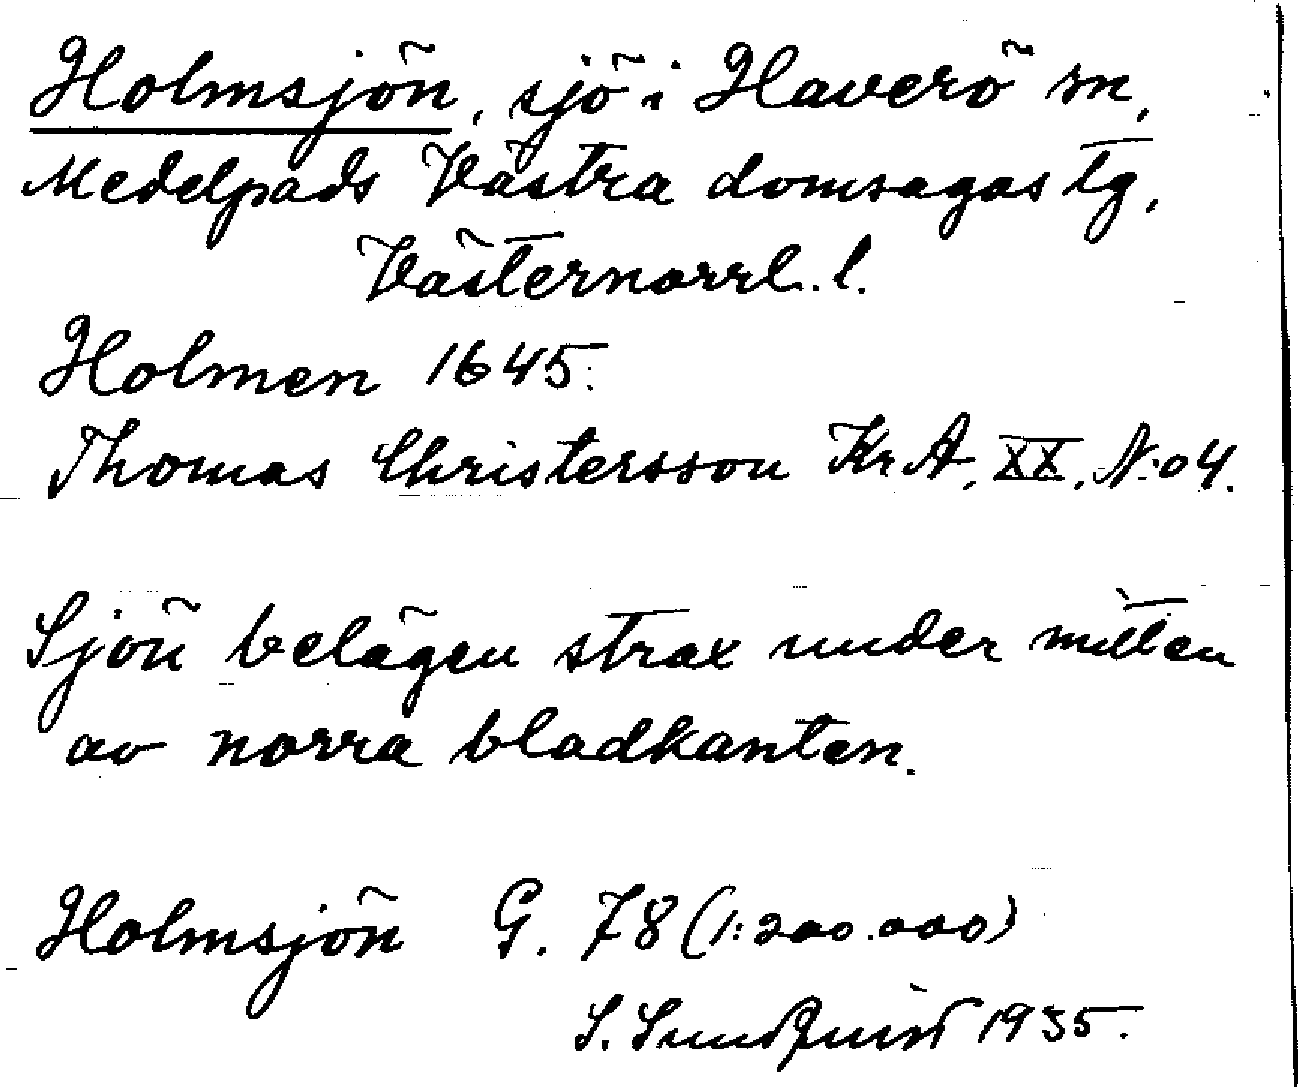 Holmsjön, sjö i Haverö sn,
Medelpads Västra domsagas tg,
Västernorrl. l.
Holmen 1645.
Thomas Christersson Kr. A, XX, N:o 4.
Sjön belägen strax under mitten
av norra bladkanten.
Holmsjön G. 78 (1:200.000)
S. Sundquist 1935.